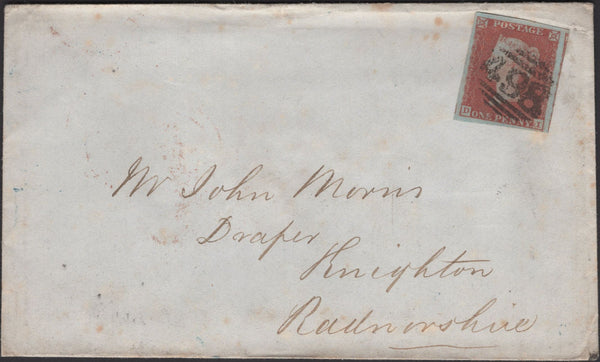 POSTAGE
498
ONE PENNY
Mr John Morris
Draper
Knighton
Radnorshire